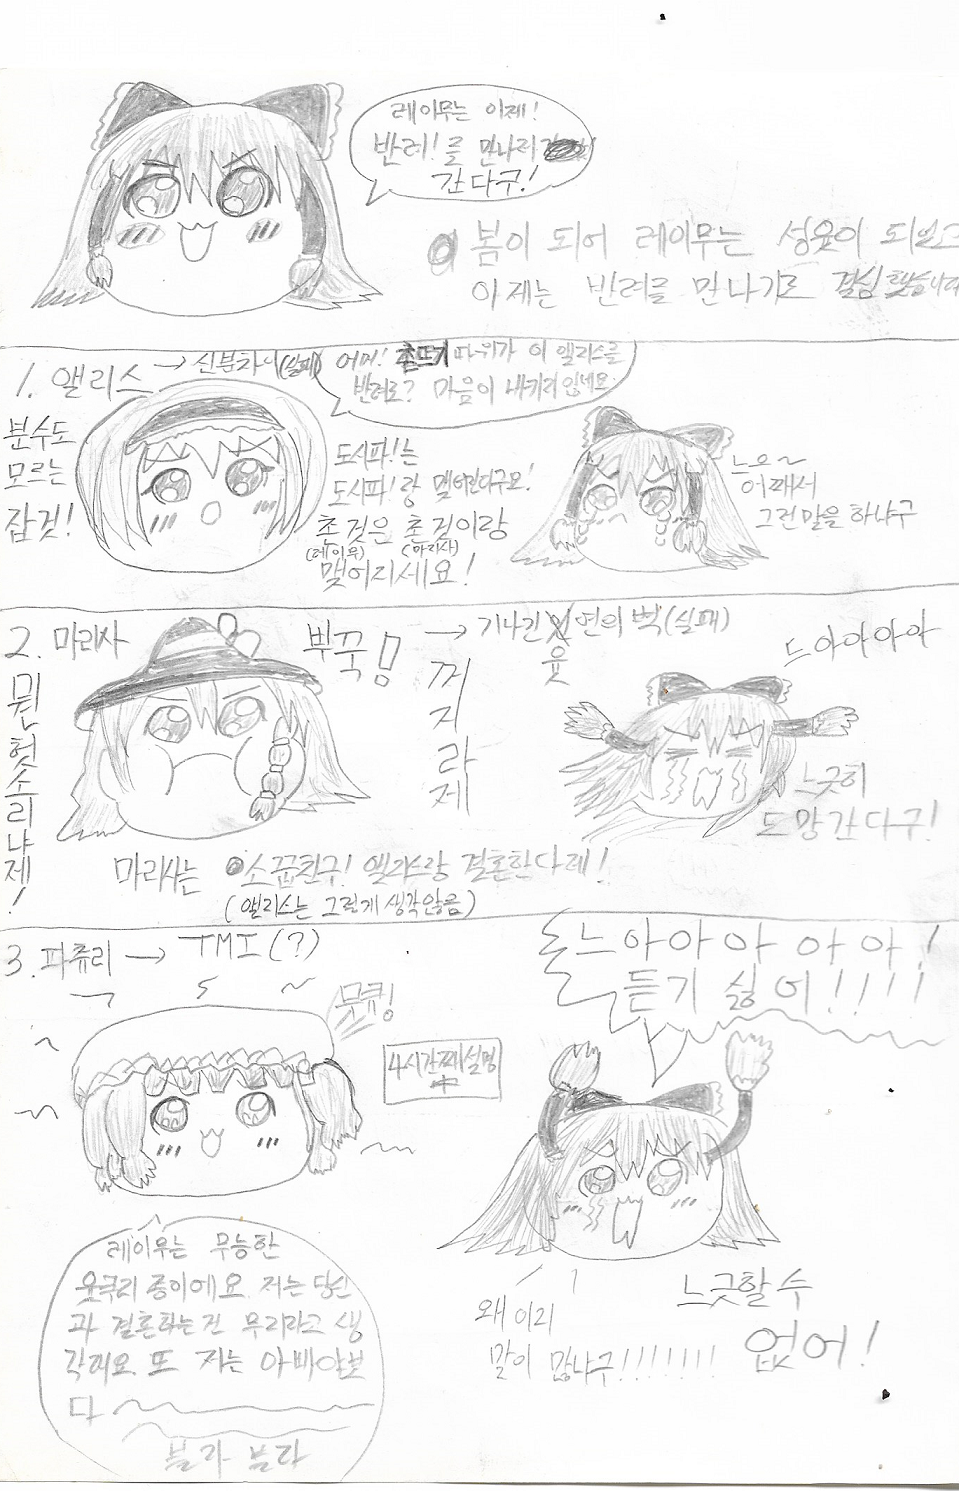 레이무는 이제!
반려!를 만나러
간다구!
봄이 되어 레이무는 성윳이 되었고
이제는 반려를 만나기로 결심했습니다
1. 앨리스 → 신분차이(실패)
어머! 촌뜨기 따위가 이 앨리스를
반려로? 마음이 내키리 있네요.
분수도
모르는
잡것!
도시파!는
도시파!랑 맺어진다구요!
촌것은 촌것이랑
(레이무) (마리사)
맺어지세요!
느으~
어째서
그런말을 하냐구
2. 마리사
뿌꾹!!
→ 기나긴 윳연의 벽(실패)
뭔 헛소리냐제!
꺼지라제
느아아아아
느긋히
도망간다구!
마리사는 소꿉친구! 앨리스랑 결혼한다제!
(앨리스는 그렇게 생각않음)
3. 파츄리 → TMI(?)
무큐!
4시간째 설명
中
느아아아 아아!
듣기 싫어!!!!
레이무는 무능한
윳쿠리 종이에요. 저는 당신
과 결혼하는건 무리라고 생
각해요. 또 저는 아빠
다
블라 블라
왜 이리
말이 많냐구!!!!!!!
느긋할 수
없어!